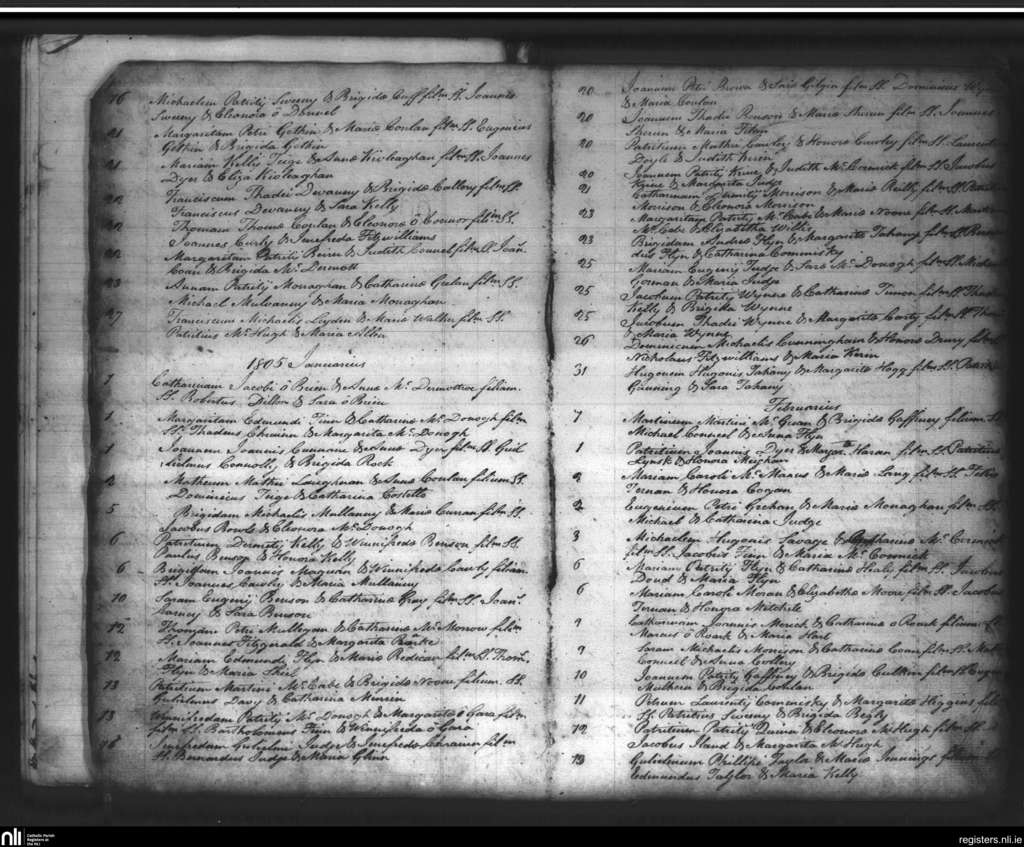 16 Michaelem Patritij Sweeny & Brigidæ Cuff film. SS. Joannes
Sweeny & Eleonora ô Donnel
21 Margaritam Petri Gethin & Mariæ Conlan film SS. Eugenius
Gethin & Brigida Gethin
21 Mariam Kellij Teige & Annæ Kivleaghan film SS. Joannes
Dyer & Eliza Kivleaghan
22 Franciscum Thadei Devanny & Brigidæ Collery film SS.
Franciscus Devanny & Sara Kelly
22 Thomam Thomæ Conlan & Eleonoræ ô Connor filim SS.
Joannes Curly & Jenefreda Fitzwilliams
22 Margaretam Patritij Beirn & Judith Connel film SS. Joan.
Coan & Brigida Mc. Dermott
23 Annam Patritij Monaghan & Catharinæ Geelan film SS.
Michael Mulvaney & Maria Monaghan
27 Franciscum Michaelis Leyden & Mariæ Walker film SS.
Patritius Mc. Hugh & Maria Allen
1805 Januarius
1 Catharinam Jacobi ô Brien & Annæ Mc. Dermottroe filiam.
SS. Robertus Dillon & Sara ô Brien
1 Margaritam Edmundi Finn & Catharinæ Mc. Donogh film
SS. Thadeus & Margarita Mc. Donogh
1 Joannem Joannis Cunnane & Annæ Dyer film SS. Guil
ielmus Connolly & Brigida Rock
2 Matheum Mathei Loughnan & Annæ Conlan filium SS.
Dominicus Teige & Catharina Costello
5 Brigidam Michaelis Mullaney & Mariæ Curran film SS.
Jacobus Rowls & Eleonora Mc. Donogh
6 Patritium Dermitij Kelly & Winnifredæ Benson film SS.
Paulus Benson & Honora Kelly
6 Brigidam Joannis Maguan & Winnifredæ Cawly filiam.
SS. Joannes Cawley & Maria Mullaney
10 Saram Eugenij Benson & Catharinæ Gray film SS. Joan.
& Sara Benson
12 Thomam Petri Mullegan & Catharinæ Mc. Morrow filim
SS. Joannes Fitzgerald & Margarita
12 Mariam Edmundi Flyn & Mariæ Redican film SS. Thom.
Flyn & Maria
13 Patritium Martini Mc. Cabe & Brigidæ Noone filium. SS.
Gulielmus Davy & Catharina
13 Winnifredam Patritij Mc. Donogh & Margaritæ ô Gara film
film SS. Bartholomeus Finn & Winnifreda ô Gara
16 Jenefredam Gulielmi Judge & Jenefredæ film
SS. Bernardus Judge & Maria Glinn
20 Joannem Petri Brown & Saræ Gilgin film SS. Dominicus
& Maria Conlan
20 Joannem Thadei Benson & Mariæ Sheran film SS. Joannes
Sheran & Maria
20 Patritium Mathei Cawley & Honoræ Cawley film SS. Laurentius
Doyle & Judith Kerin
20 Joannem Patritij & Judith Mc. Cormick film SS. Jacobus
& Margarita Judge
21 Catharinam Dermitij Morrison & Mariæ Reilly film SS.
Morison & Eleonora Morrison
23 Margaritam Patritij Mc. Cabe & Mariæ Noone film SS.
Mc. Cabe & Elizabetha Willis
23 Brigidam Andreæ Flyn & Margaritæ Tahany film SS.
dus Flyn & Catharina Commisky
25 Mariam Eugenij Judge & Saræ Mc. Donogh film SS.
Gorman & Maria Judge
25 Jacobum Patritij Wynne & Catharinæ Timon film SS.
Kelly & Brigitta Wynne
25 Jacobum Thadei Wynne & Margaritæ Carty film SS.
& Maria Wynne
26 Dominicum Michaelis Cunningham & Honoræ Drury
Nicholaus Fitzwilliams & Maria Kerin
31 Hugonem Hugonis Tahany & Margaritæ Hogg film SS.
Ganning & Sara Tahany
Februarius
1 Martinum Martini Mc. Guan & Brigidæ Gaffney filium SS
Michael Conneel & Anna Flyn
1 Patritium Joannis Dyer & Margtæ Haran film SS. Patritius
Lynsk & Honora Meighan
2 Mariam Caroli Mc. Manus & Mariæ Lang film SS.
Ternan & Honora Cogan
2 Eugenium Petri Grehan & Mariæ Monaghan film SS.
Michael & Catharina Judge
3 Michaelem Hugonis Savage & Catharinæ Mc. Cormick
film SS. Jacobus Finn & Maria Mc. Cormick
6 Mariam Patritij Flyn & Catharinæ Healy film SS. Jacobus
Doud & Maria Flyn
6 Mariam Caroli Moran & Elizabethæ Moore film SS. Jacobus
Ternan & Honora Mitchele
9 Catharinam Joannis Merick & Catharinæ ô Roark filiam SS
Marcus ô Roark & Maria Hart
9 Saram Michaelis Morrison & Catharinæ Coan film SS.
Conneel & Anna Collery
10 Joannem Patritij Gaffney & Brigidæ Culkin film SS.
Mulhern & Brigida Conlan
11 Petrum Laurentij Commisky & Margaritæ Higgins
SS. Patritius Sweeny & Brigida Begly
12 Patritium Patritij Quinn & Eleonoræ Mc. Hugh film SS
Jacobus & Margarita Mc. Hugh
13 Gulielmum Phillipi Taylor & Mariæ Jennings
Edmundus Taylor & Maria Kelly
nli
Catholic Parish
Registers at
the NLI
registers.nli.ie